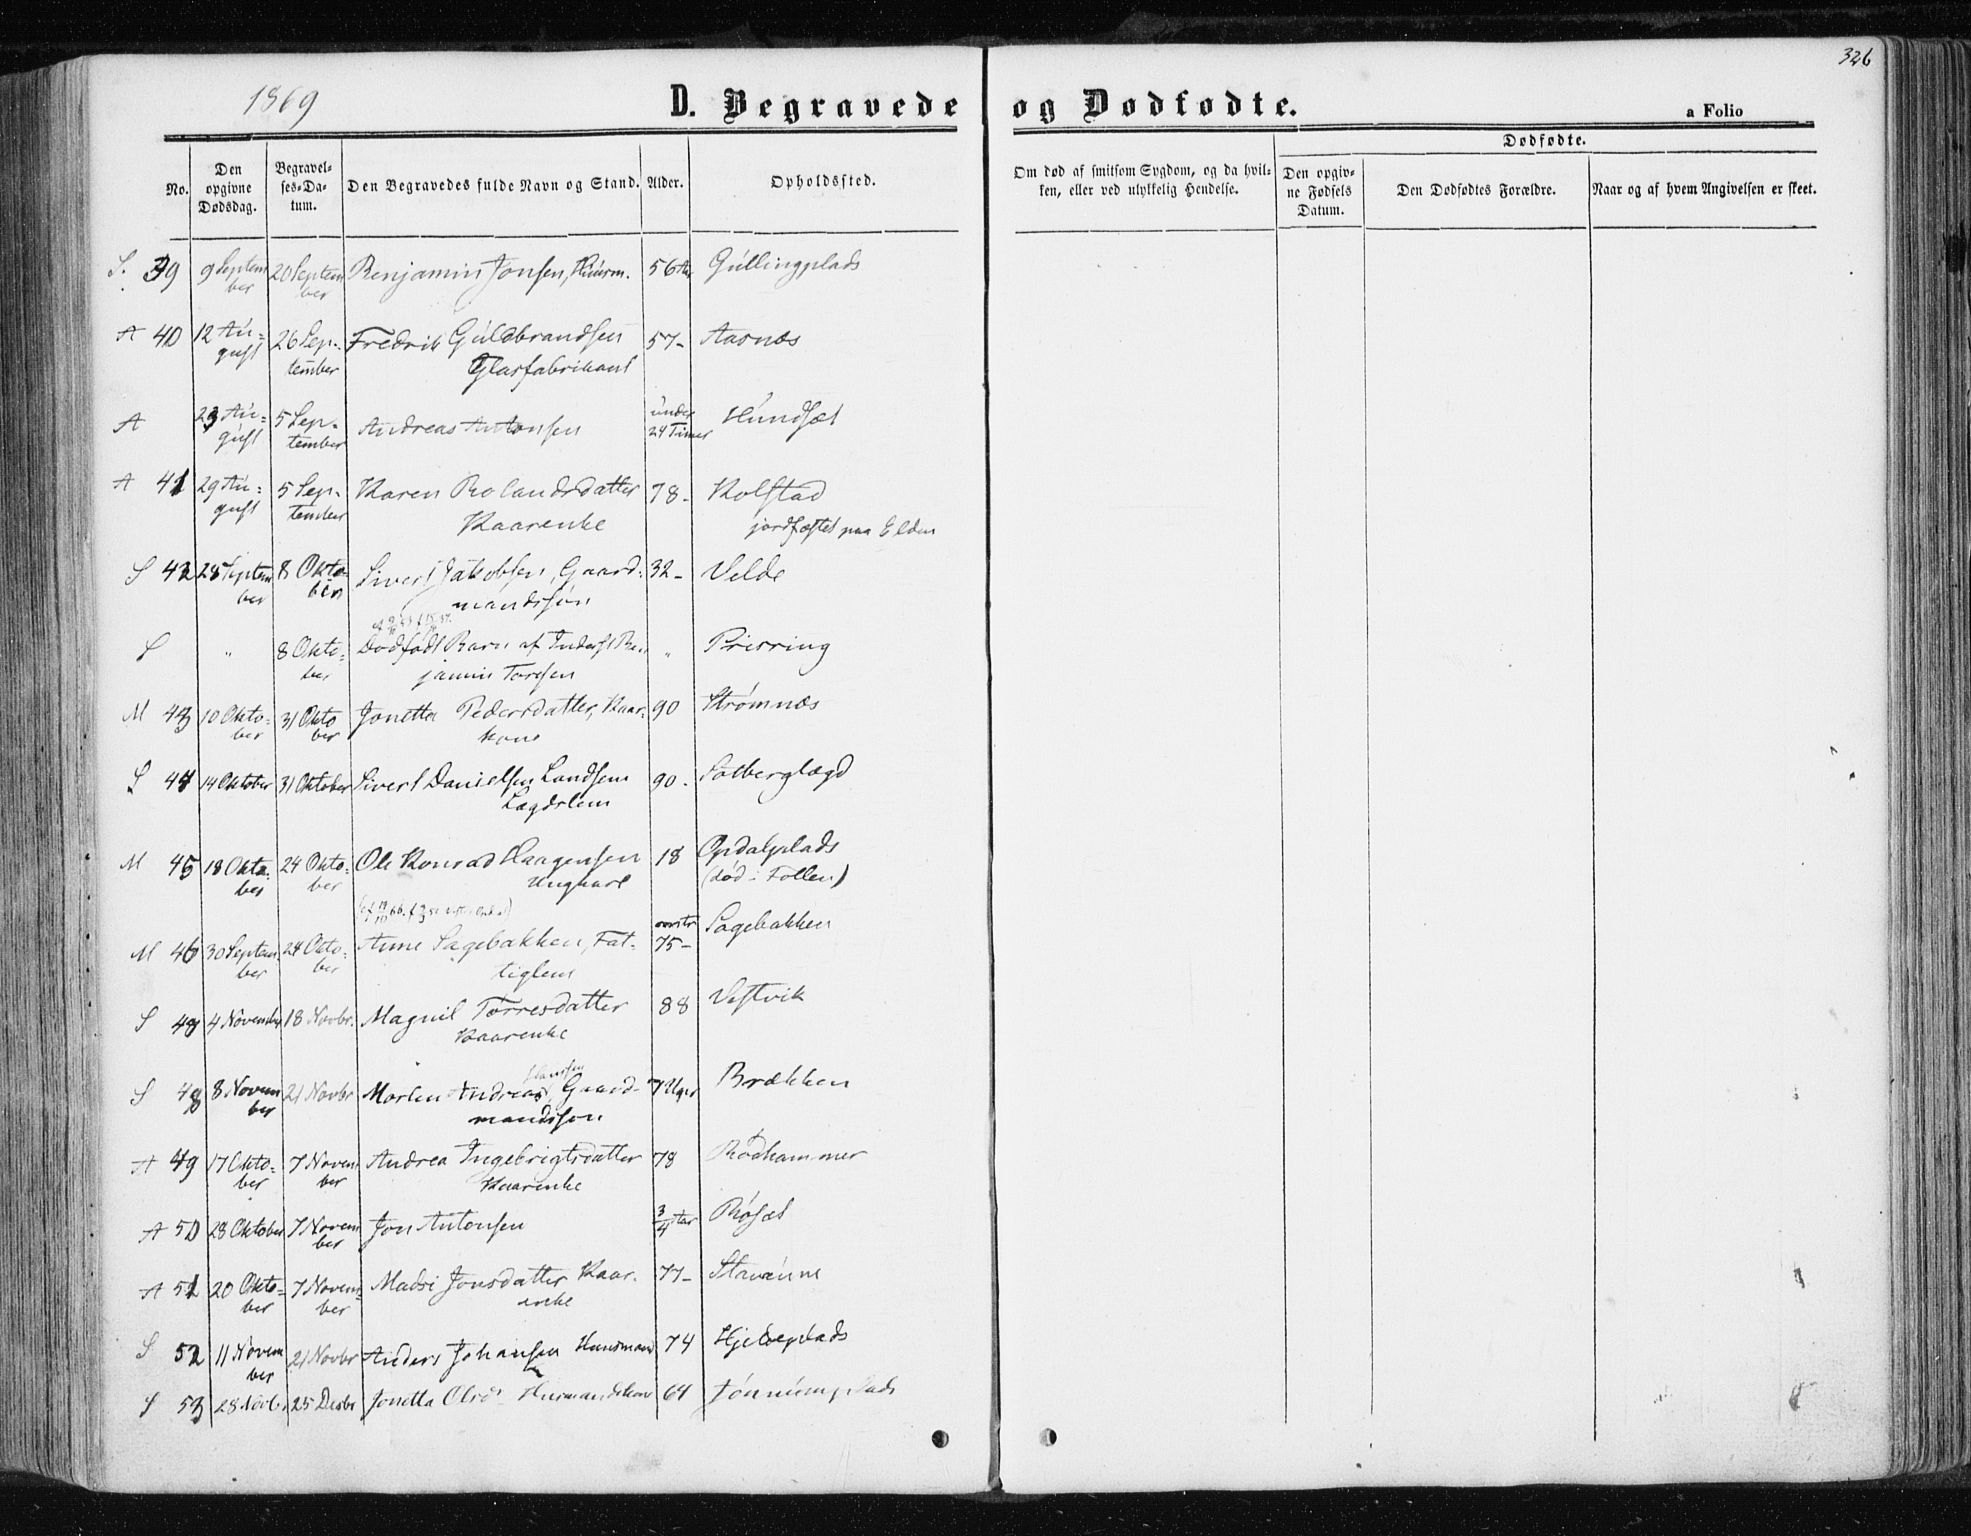 326
1869
D. Begravede og Dødfødte.
a Folio
No.
Den opgivne Dødsdag.
Begravelses-Datum.
Den Begravedes fulde Navn og Stand.
Alder.
Opholdssted.
Om død af smitsom Sygdom, og da hvilken, eller ved ulykkelig Hendelse.
Dødfødte.
Den opgivne Fødsels Datum.
Den Dødfødtes Forældre.
Naar og af hvem Angivelsen er skeet.
S. 39 9 September 20 September Benjamin Jonsen, Huusm. 56 Aar Gullingplads
A 40 12 August 26 September Fredrik Guldbrandsen 57- Aasnæs
Glasfabrikant
A 23 August 5 September Andreas Antonsen under 24 Timer Hundsæt
A 41 29 August 5 September Karen Rolandsdatter 78- Kolstad
Kaarenke jordfæstet paa Elden
S 42 28 September 8 Oktober Sivert Jakobsen, Gaard- 32- Velde
mandssøn
S " 8 Oktober Dødfødt Barn af Inderst Ben- " Prisring
jamin Toresen
M 43 10 Oktober 31 Oktober Jonetta Pedersdatter, Kaar- 90 Strømnæs
kone
S 44 14 Oktober 31 Oktober Sivert Danielsen Landsem 90- Solberglægd
Lægdslem
M 45 18 Oktober 24 Oktober Ole Konrad Haagensen 18 Opdalplads
Ungkarl (død i Follen)
M 46 30 September 24 Oktober Anne Sagebakken, Fat- 75- Sagebakken
tiglem
S 4 November 18 Novbr. Magnil Torresdatter 88 Vestvik
Kaarenke
Hansen
S 48 8 November 21 Novbr Morten Andreas, Gaard- 7 Uger Brækken
mandssøn
A 49 17 Oktober 7 November Andrea Ingebrigtsdatter 78 Rødhammer
Kaarenke
A 50 28 Oktober 7 November Jon Antonsen 3/4 Aar Røsæt
A 51 20 Oktober 7 November Madsi Jonsdatter Kaar- 77-
enke
S 52 11 November 21 Novbr Anders Johansen Huusmand 74
S 53 28 Novbr 25 Decbr Jonetta Olsd. Husmandskone 64